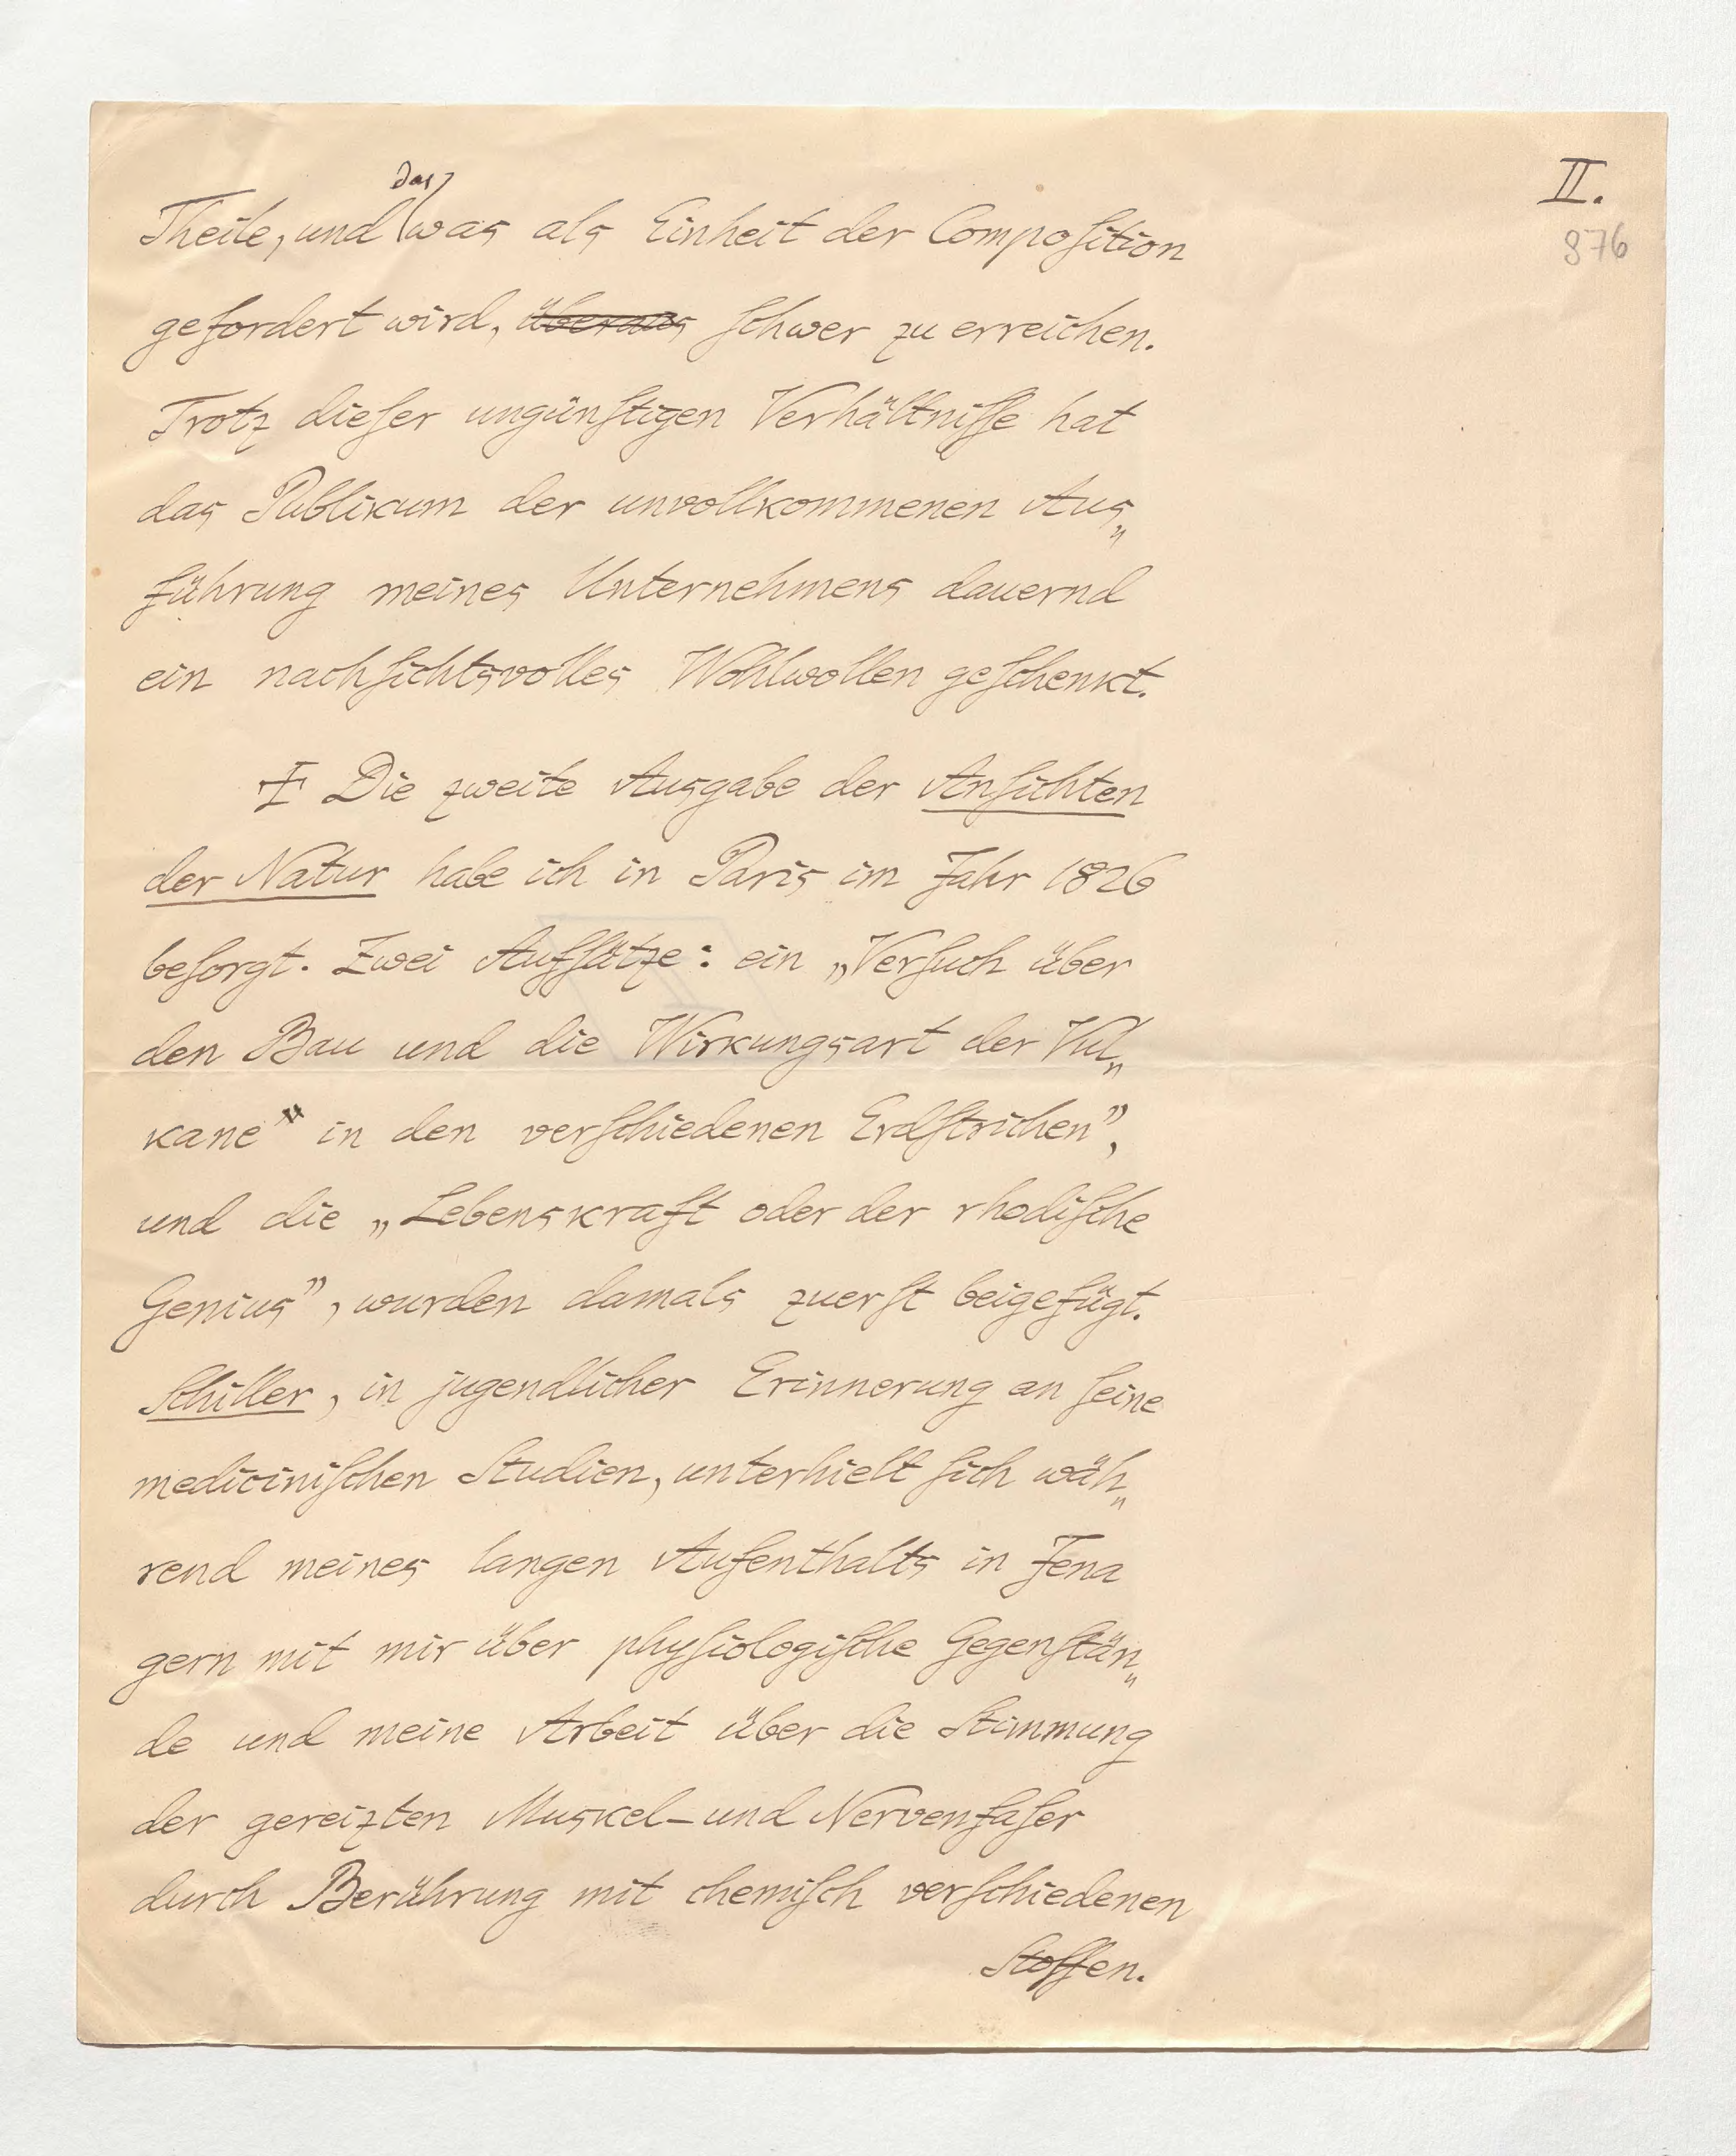 II.
876
das
Theile, und was als Einheit der Composition
gefordert wird, überaus schwer zu erreichen.
Trotz dieser ungünstigen Verhältnisse hat
das Publikum der unvollkommenen Aus„
führung meines Unternehmens dauernd
ein nachsichtsvolles Wohlwollen geschenkt.
I Die zweite Ausgabe der Ansichten
der Natur habe ich in Paris im Jahr 1826
besorgt. Zwei Aufsätze: ein „Versuch über
den Bau und die Wirkungsart der Vul„
kane" in den verschiedenen Erdstrichen",
und die „Lebenskraft oder der rhodische
Genius", wurden damals zuerst beigefügt.
Schiller, in jugendlicher Erinnerung an seine
medicinischen Studien, unterhielt sich wäh„
rend meines langen Aufenthalts in Jena
gern mit mir über physiologische Gegenstän„
de und meine Arbeit über die Stimmung
der gereizten Muskel-und Nervenfaser
durch Berührung mit chemisch verschiedenen
Stoffen.